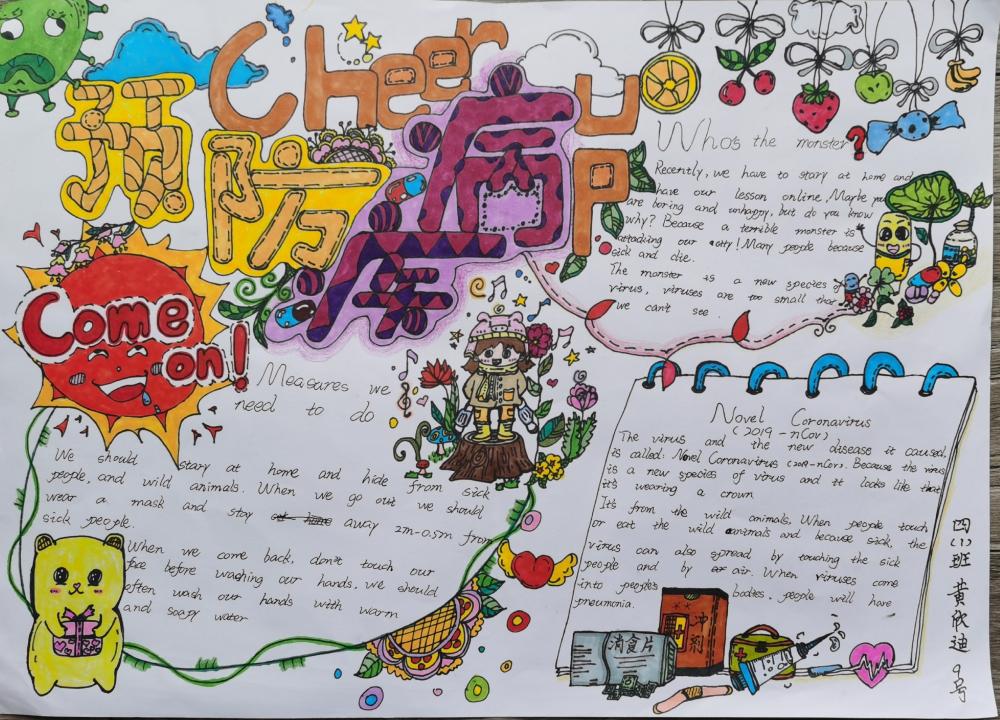 Cheer
up
预防病毒
Come
on!
Who's the monster?
Recently, we have to stary at home and
have our lesson online. Maybe you
are boring and unhappy, but do you know
why? Because a terrible monster is
attacking our city! Many people because
sick and die.
The monster is a new species of
virus, viruses are too small that
we can't see.
Measures we
need to do
We should stary at home and hide from sick
people, and wild animals. When we go out we should
wear a mask and stay away 2m-0.5m from
sick people.
When we come back, don't touch our
face before washing our hands. we should
often wash our hands with warm
and soapy water
Novel Coronavirus
(2019-nCov)
The virus and the new disease it caused,
is called Novel Coronavirus (2019-nCov). Because the virus
is a new species of virus and it looks like that
it's wearing a crown
It's from the wild animals. When people touch
or eat the wild animals and because sick, the
virus can also spread by touching the sick
people and by air. When viruses come
into people's bodies. people will have
pneumonia.
消食片
冲剂
四(1)班 黄欣迪 9号